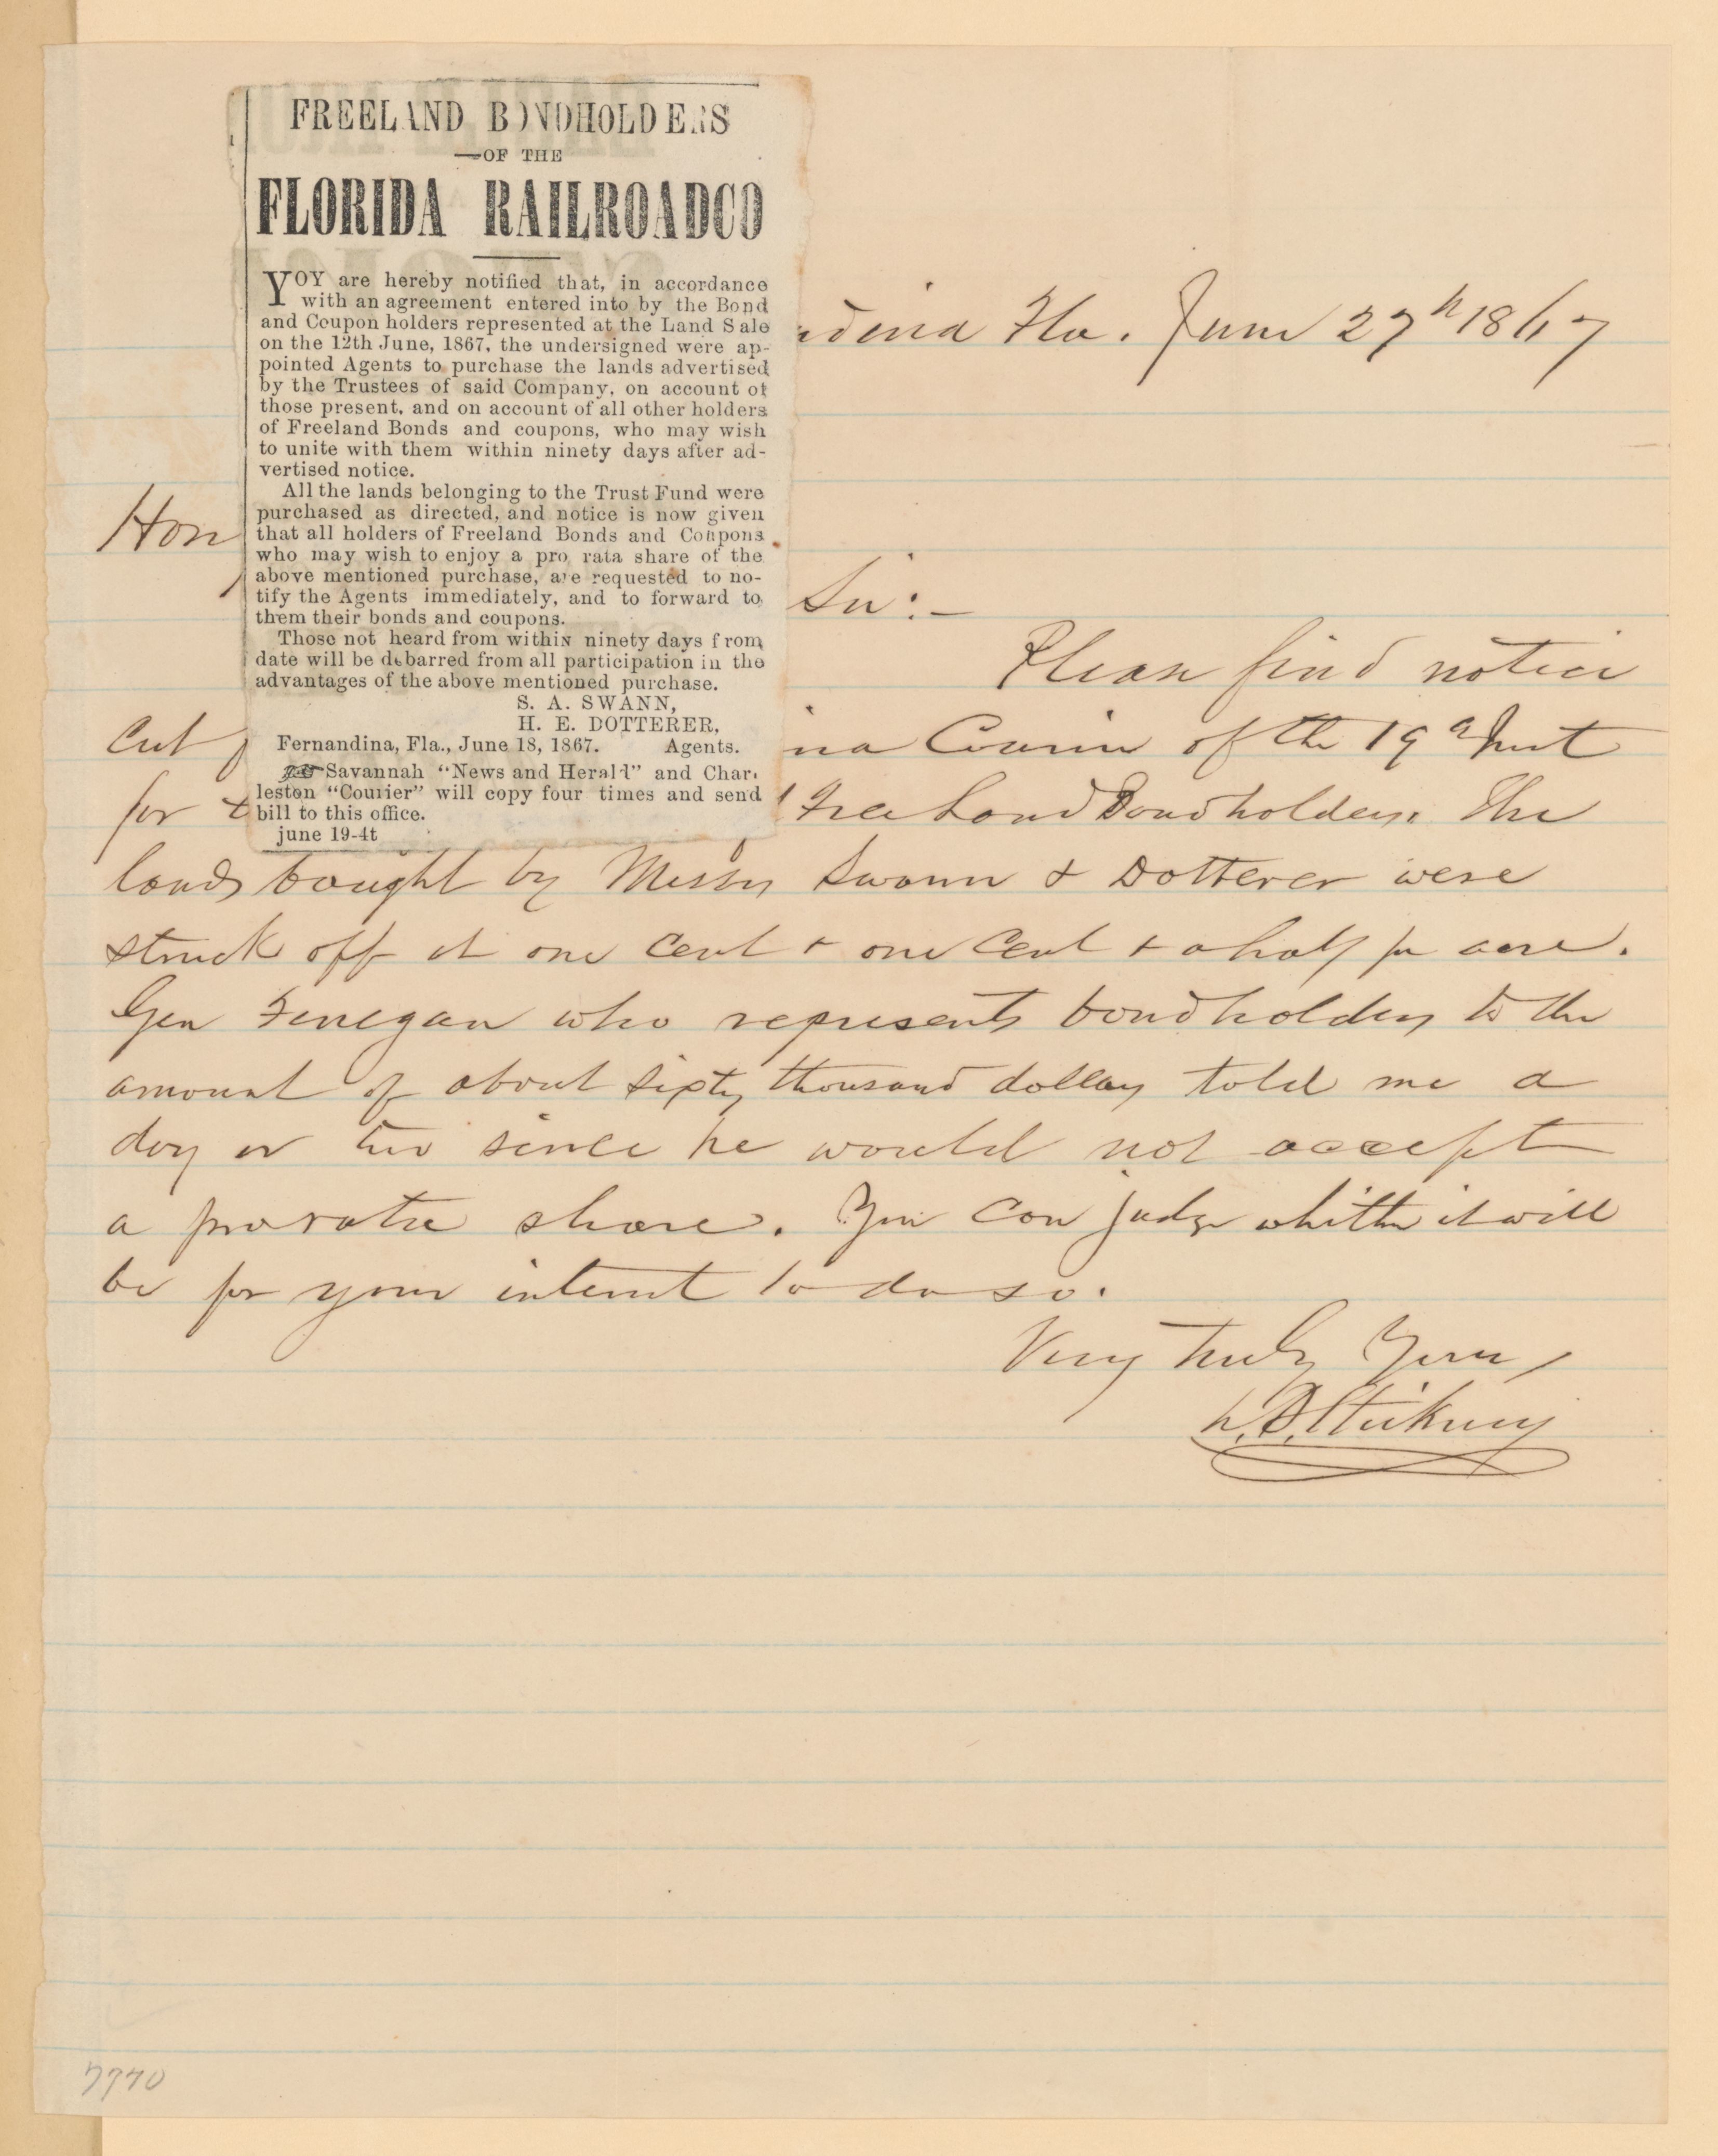 FREELAND BONDHOLDERS
—OF THE
FLORIDA RAILROADCO
YOY are hereby notified that, in accordance
with an agreement entered into by the Bond
and Coupon holders represented at the Land Sale
on the 12th June, 1867, the undersigned were ap-
pointed Agents to purchase the lands advertised
by the Trustees of said Company, on account of
those present, and on account of all other holders
of Freeland Bonds and coupons, who may wish
to unite with them within ninety days after ad-
vertised notice.
All the lands belonging to the Trust Fund were
purchased as directed, and notice is now given
that all holders of Freeland Bonds and Coupons
who may wish to enjoy a pro rata share of the
above mentioned purchase, are requested to no-
tify the Agents immediately, and to forward to
them their bonds and coupons.
Those not heard from within ninety days from
date will be debarred from all participation in the
advantages of the above mentioned purchase.
S. A. SWANN,
H. E. DOTTERER,
Fernandina, Fla., June 18, 1867. Agents.
Savannah "News and Herald" and Char-
leston "Courier" will copy four times and send
bill to this office.
june 19-4t
ndina Fla. June 27th 1867
Hon
Sir:—
Please find notice
cut na Courier of the 19th Inst
for Free Land Bondholders. The
lands bought by Messrs Swann & Dotterer were
struck off at one cent & one cent & a half per acre.
Gen Finegan who represents bondholders to the
amount of about sixty thousand dollars told me a
day or two since he would not accept
a pro rata share. You can judge whether it will
be for your interest to do so.
Very truly Yours,
L. D. Stickney
7770